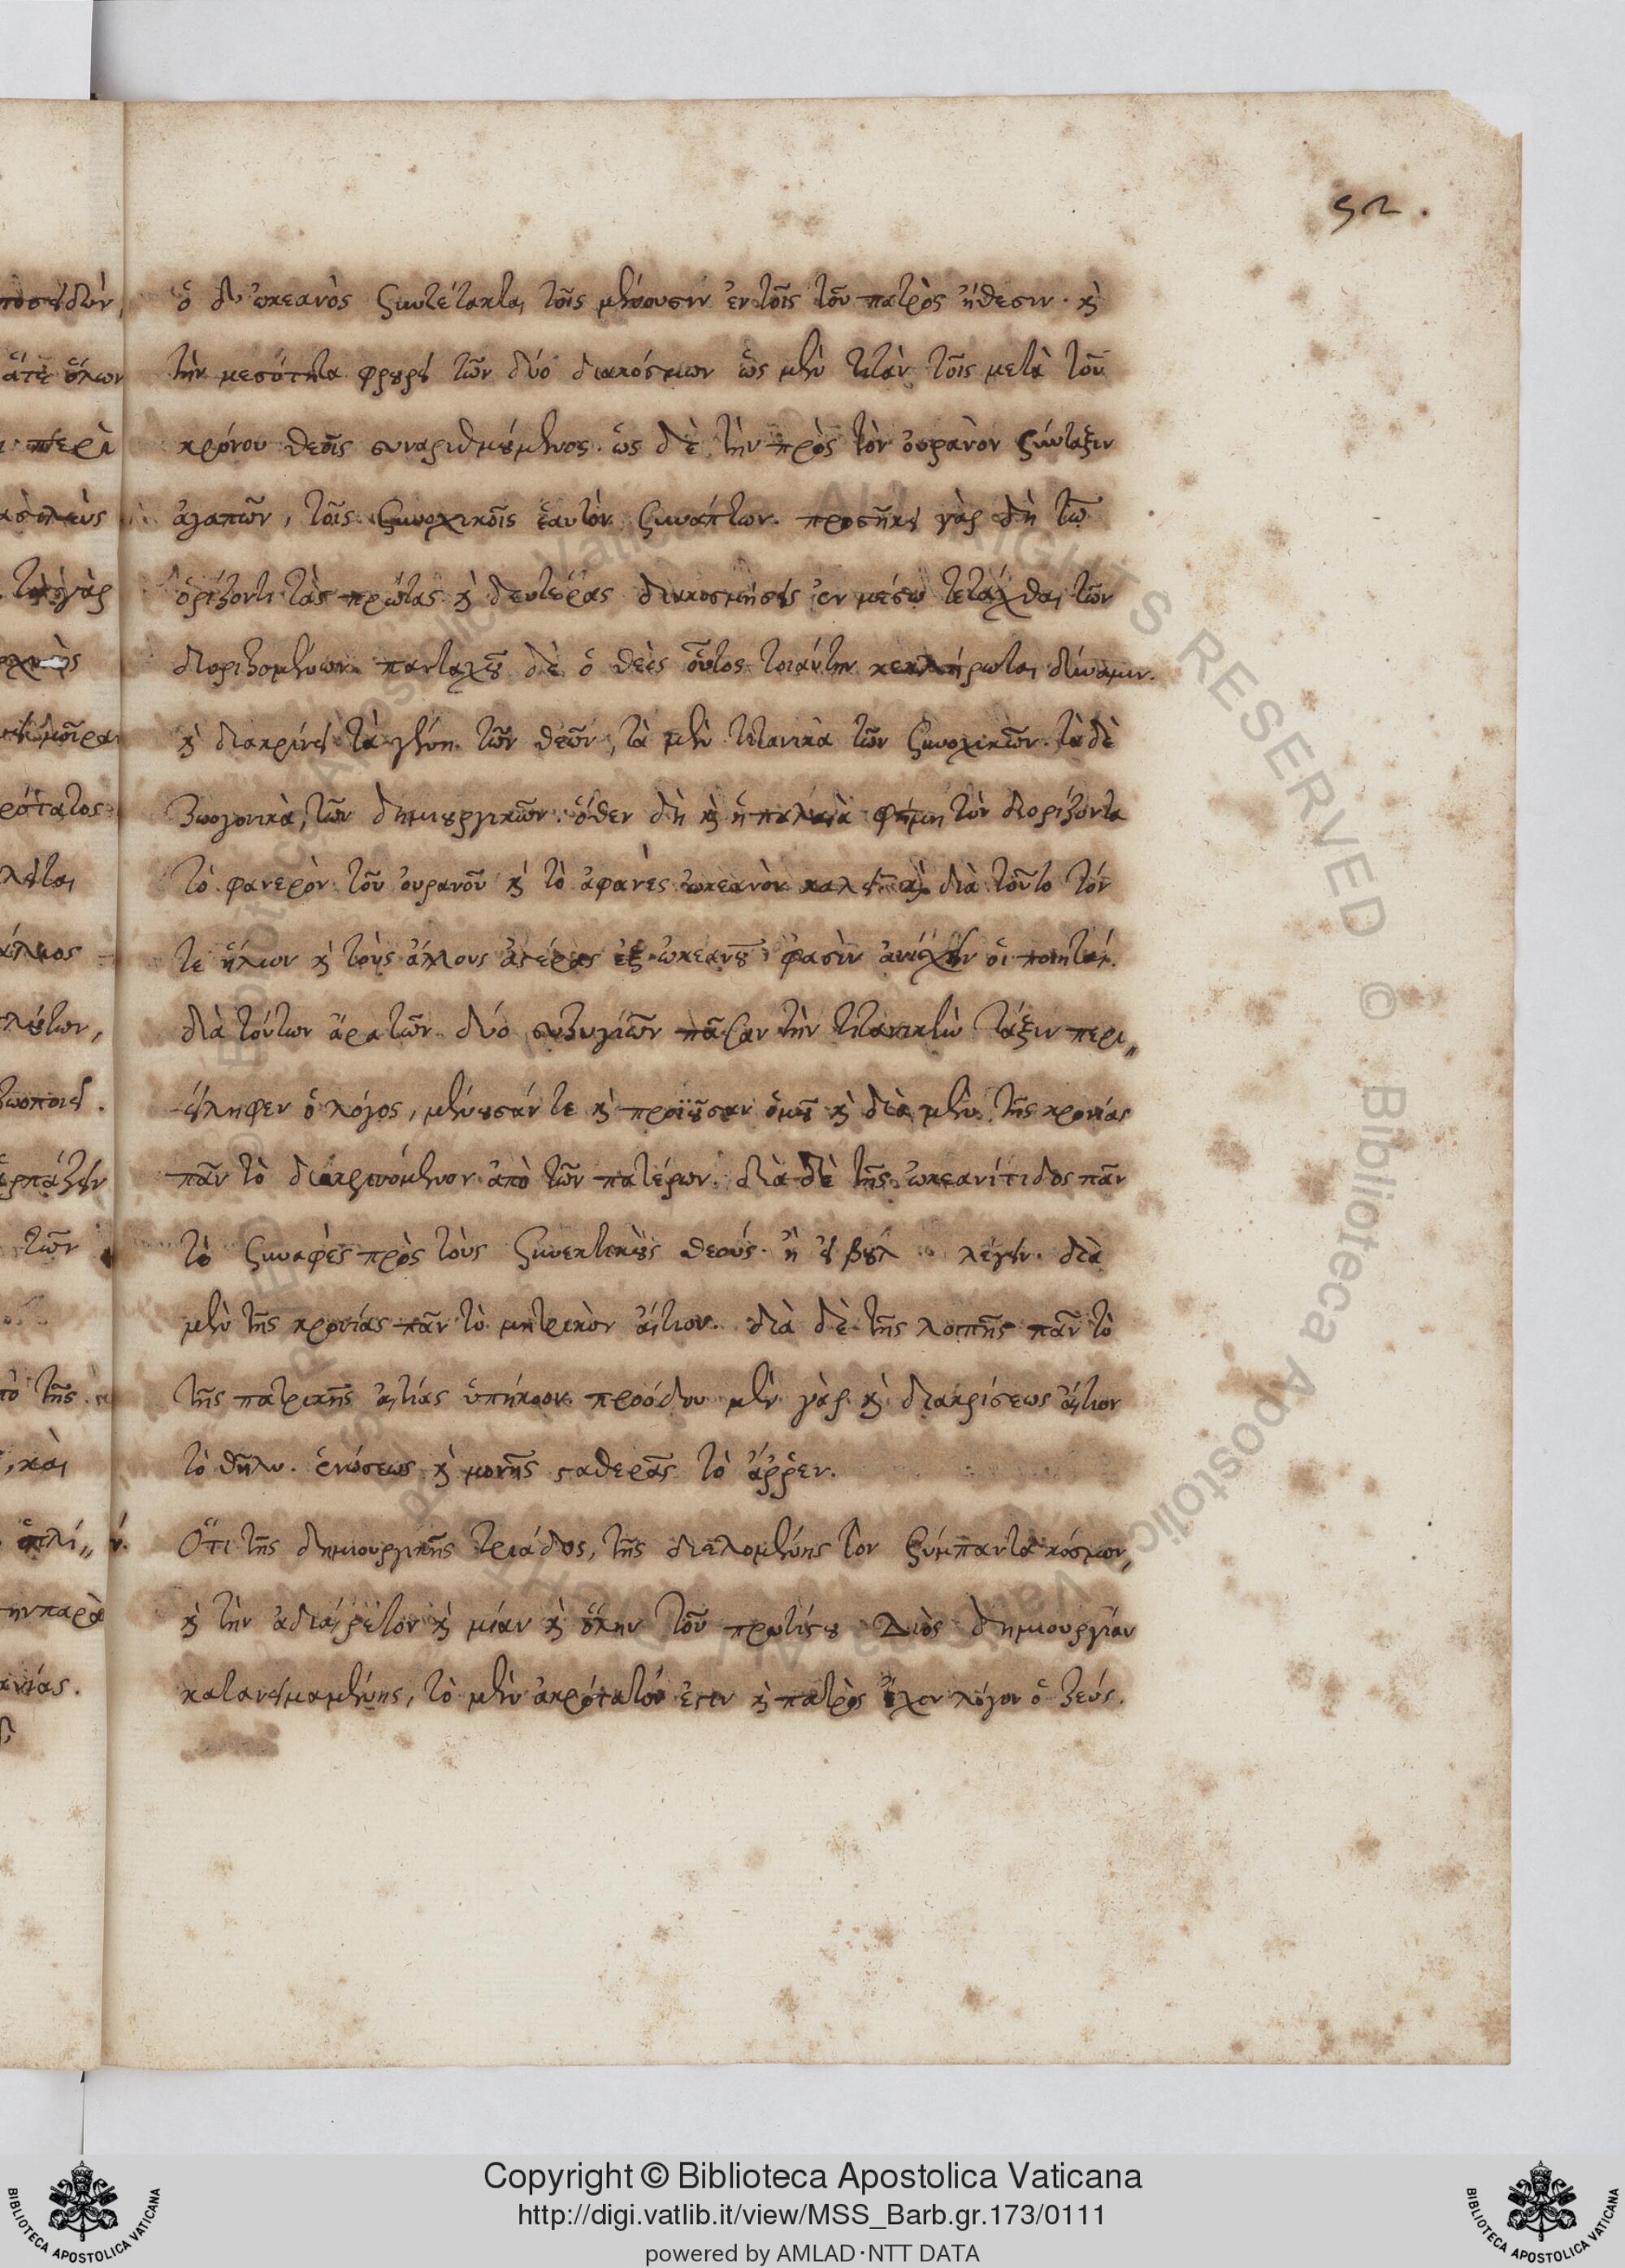 52.
ὁ δ' ὠκεανὸς ξυντέτακται τοῖς μένουσιν ἐν τοῖς τοῦ πατρὸς ἤθεσιν. καὶ
τὴν μεσότητα φρουρεῖ τῶν δύο διακόσμων ὡς μὲν τιτὰν τοῖς μετὰ τοῦ
κρόνου θεοῖς συναριθμούμενος. ὡς δὲ τὴν πρὸς τὸν οὐρανὸν ξύνταξιν
ἀγαπῶν, τοῖς ξυνοχικοῖς ἑαυτὸν ξυνάπτων. προσήκει γὰρ δὴ τῶ
ὁρίζοντι τὰς πρώτας καὶ δευτέρας διακοσμήσεις ἐν μέσω τετάχθαι τῶν
διοριζομένων. πανταχοῦ δὲ ὁ θεὸς οὗτος τοιαύτην κεκλήρωται δύναμιν.
καὶ διακρίνει τὰ γένη τῶν θεῶν, τὰ μὲν τιτανικὰ τῶν ξυνοχικῶν. τὰ δὲ
ζωογονικὰ, τῶν δημιουργικῶν. ὅθεν δὴ καὶ ἡ παλαιὰ φήμη τὸν διορίζοντα
τὸ φανερὸν τοῦ οὐρανοῦ καὶ τὸ ἀφανὲς ὠκεανὸν καλεῖ. καὶ διὰ τοῦτο τόν
τε ἥλιον καὶ τοὺς ἄλλους ἀστέρας ἐξ ὠκεανοῦ φασὶν ἀνίσχειν οἱ ποιηταί.
διὰ τούτων ἄρα τῶν δύο συζυγιῶν πᾶσαν τὴν τιτανικὴν τάξιν περι„
είληφεν ὁ λόγος, μένουσάν τε καὶ προϊοῦσαν ὁμοῦ καὶ διὰ μὲν τῆς κρονίας
πᾶν τὸ διακρινόμενον ἀπὸ τῶν πατέρων. διὰ δὲ τῆς ὠκεανίτιδος πᾶν
τὸ ξυναφὲς πρὸς τοὺς ξυνεκτικοὺς θεούς. ἢ εἰ βουλ λέγειν. διὰ
μὲν τῆς κρονίας πᾶν τὸ μητρικὸν αἴτιον. διὰ δὲ τῆς λοιπῆς πᾶν τὸ
τῆς πατρικῆς αἰτίας ὑπήκοον. προόδου μὲν γὰρ καὶ διακρίσεως αἴτιον
τὸ θῆλυ. ἑνώσεως καὶ μονῆς σταθερᾶς τὸ ἄῤῥεν.
Ὅτι τῆς δημιουργικῆς τριάδος, τῆς διελομένης τον ξύμπαντα κόσμον,
καὶ τὴν ἀδιαίρετον καὶ μίαν καὶ ὅλην τοῦ πρωτίστου Διὸς δημιουργίαν
κατανειμαμένης, τὸ μὲν ἀκρότατόν ἐστιν καὶ πατρὸς ἔχον λόγον ὁ ζεύς.
Copyright © Biblioteca Apostolica Vaticana
http://digi.vatlib.it/view/MSS_Barb.gr.173/0111
powered by AMLAD·NTT DATA